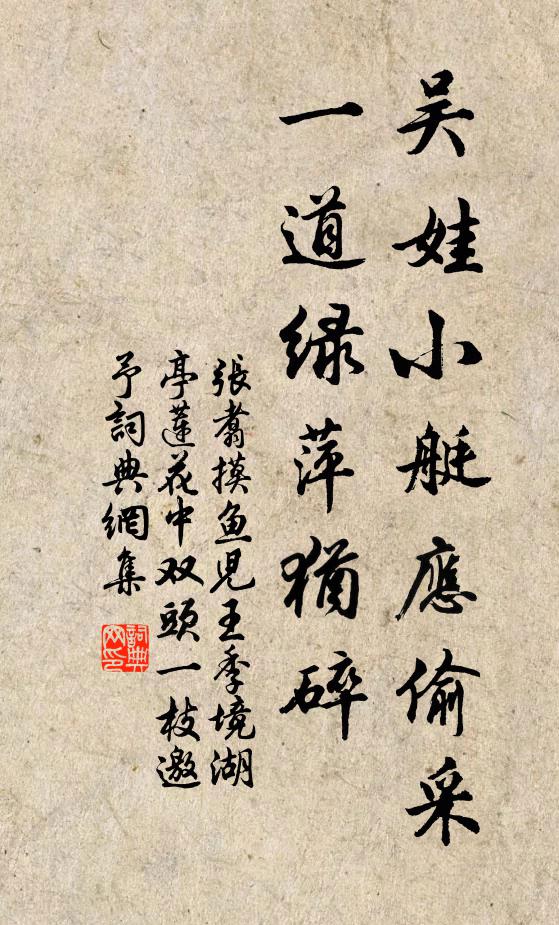 吴娃小艇應偷采
一道緑萍猶碎
張翥摸鱼児王季境湖
亭蓮花中双頭一枝邀
予詞典網集
詞典
网印